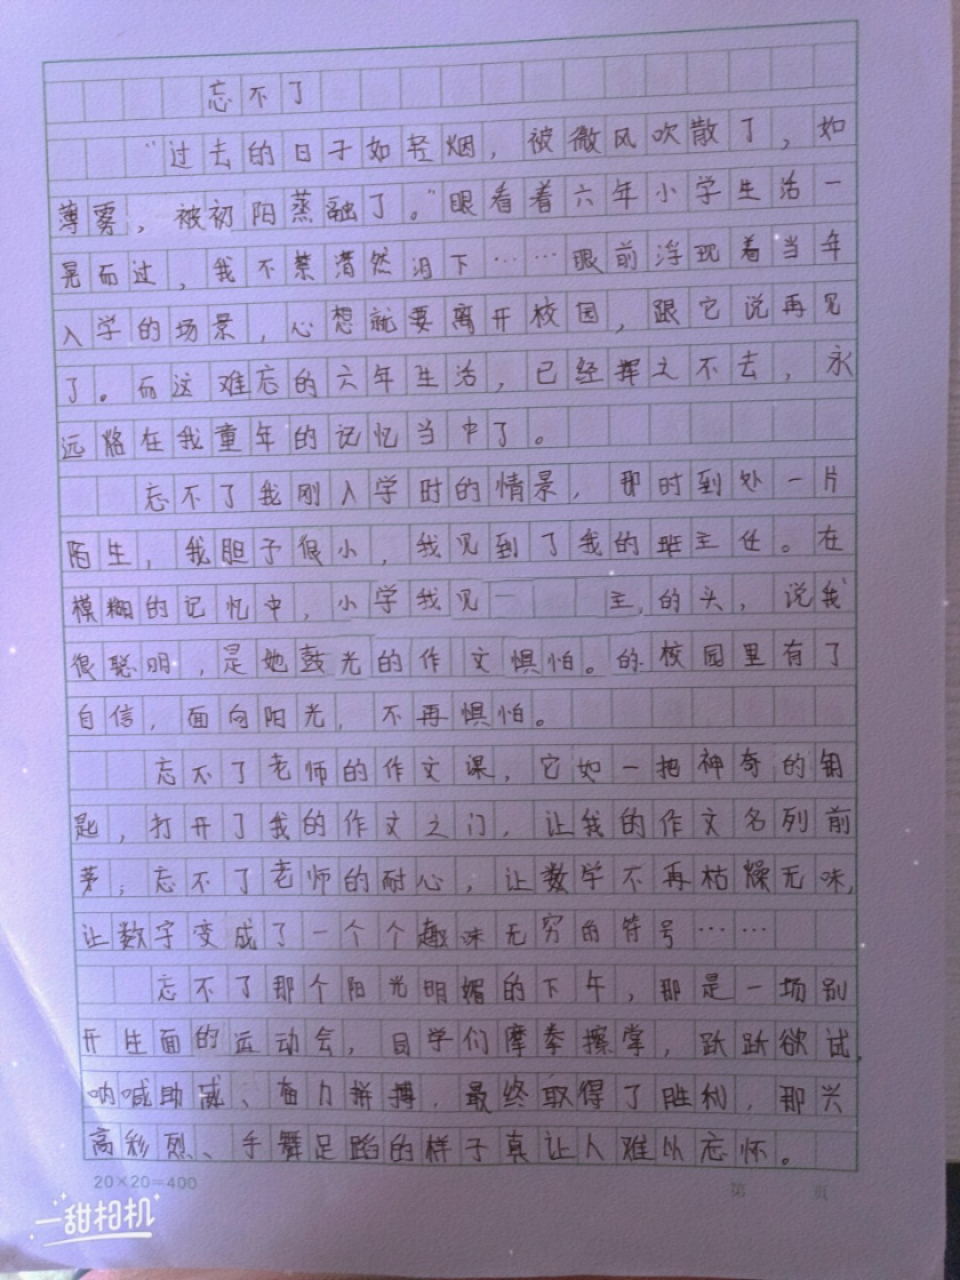 忘不了
“过去的日子如轻烟，被微风吹散了，如
薄雾，被初阳蒸融了。”眼看着六年小学生活一
晃而过，我不禁潸然泪下……眼前浮现着当年
入学的场景，心想就要离开校园，跟它说再见
了。而这难忘的六年生活，已经挥之不去，永
远烙在我童年的记忆当中了。
忘不了我刚入学时的情景，那时到处一片
陌生，我胆子很小，我见到了我的班主任。在
模糊的记忆中，小学我见一 主，的头，说我
很聪明，是她鼓光的作文惧怕。的校园里有了
自信，面向阳光，不再惧怕。
忘不了老师的作文课，它如一把神奇的钥
匙，打开了我的作文之门，让我的作文名列前
茅；忘不了老师的耐心，让数学不再枯燥无味，
让数字变成了一个个趣味无穷的符号……
忘不了那个阳光明媚的下午，那是一场别
开生面的运动会，同学们摩拳擦掌，跃跃欲试，
呐喊助威、奋力拼搏，最终取得了胜利，那兴
高彩烈、手舞足蹈的样子真让人难以忘怀。
20×20=400
第 页
一甜相机